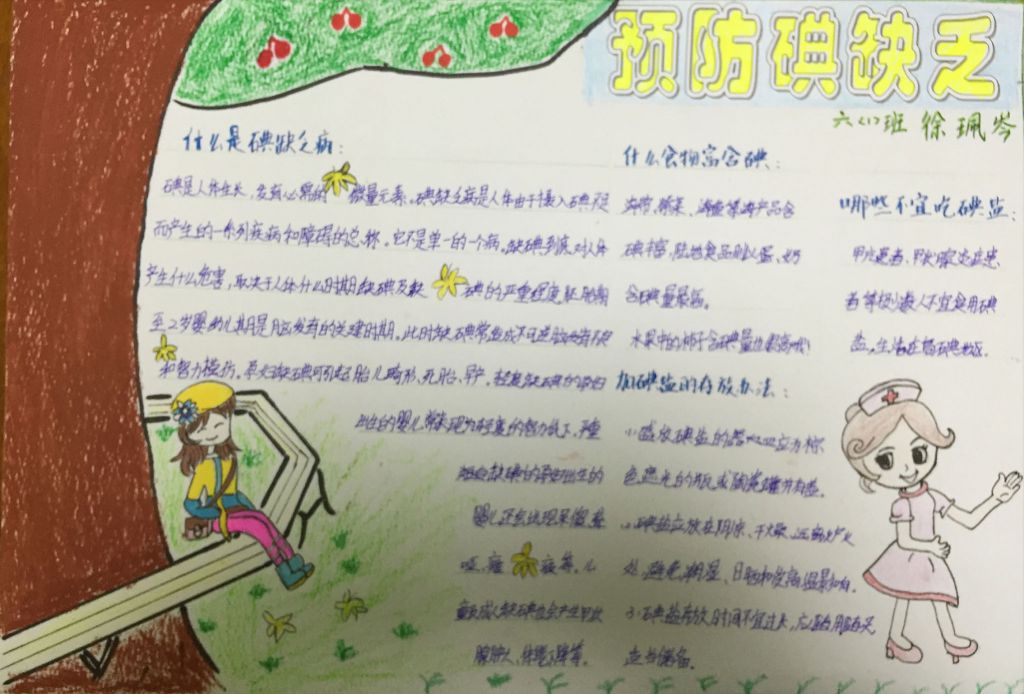 预防碘缺乏
六(1)班 徐珮岑
什么是碘缺乏病：
碘是人体生长，发育必需的微量元素。碘缺乏病是人体由于摄入碘不足
而产生的一系列疾病和障碍的总称。它不是单一的一个病。缺碘到底对人体
产生什么危害，取决于人体什么时期缺碘及缺碘的严重程度胚胎期
至2岁婴幼儿期是脑发育的关键时期。此时缺碘常造成不可逆
和智力损伤。孕妇缺碘可引起胎儿畸形、死胎、早产。轻度缺碘的孕妇
出生的婴儿常表现为轻度的智力低下，严重
缺碘的孕妇出生的
婴儿还会出现呆傻、聋
哑、瘫痪等。儿
童或成人缺碘也会产生甲状
腺肿大、体能下降等。
什么食物富含碘：
海带、紫菜、海鱼等海产品含
碘丰富，陆地食品则以蛋、奶
含碘量最高。
水果中的柿子含碘量也很高哦！
加碘盐的存放办法：
1.盛放碘盐的器皿应为棕
色遮光的瓶或陶瓷罐并加盖。
2.碘盐应放在阴凉、干燥、远离炉火
处，避免潮湿、日晒和
3.碘盐存放时间不宜过长，应
应为储备。
哪些不宜吃碘盐：
甲亢患者、甲状腺炎症患
者等极少数人不宜食用碘
盐。生活在高碘地区。